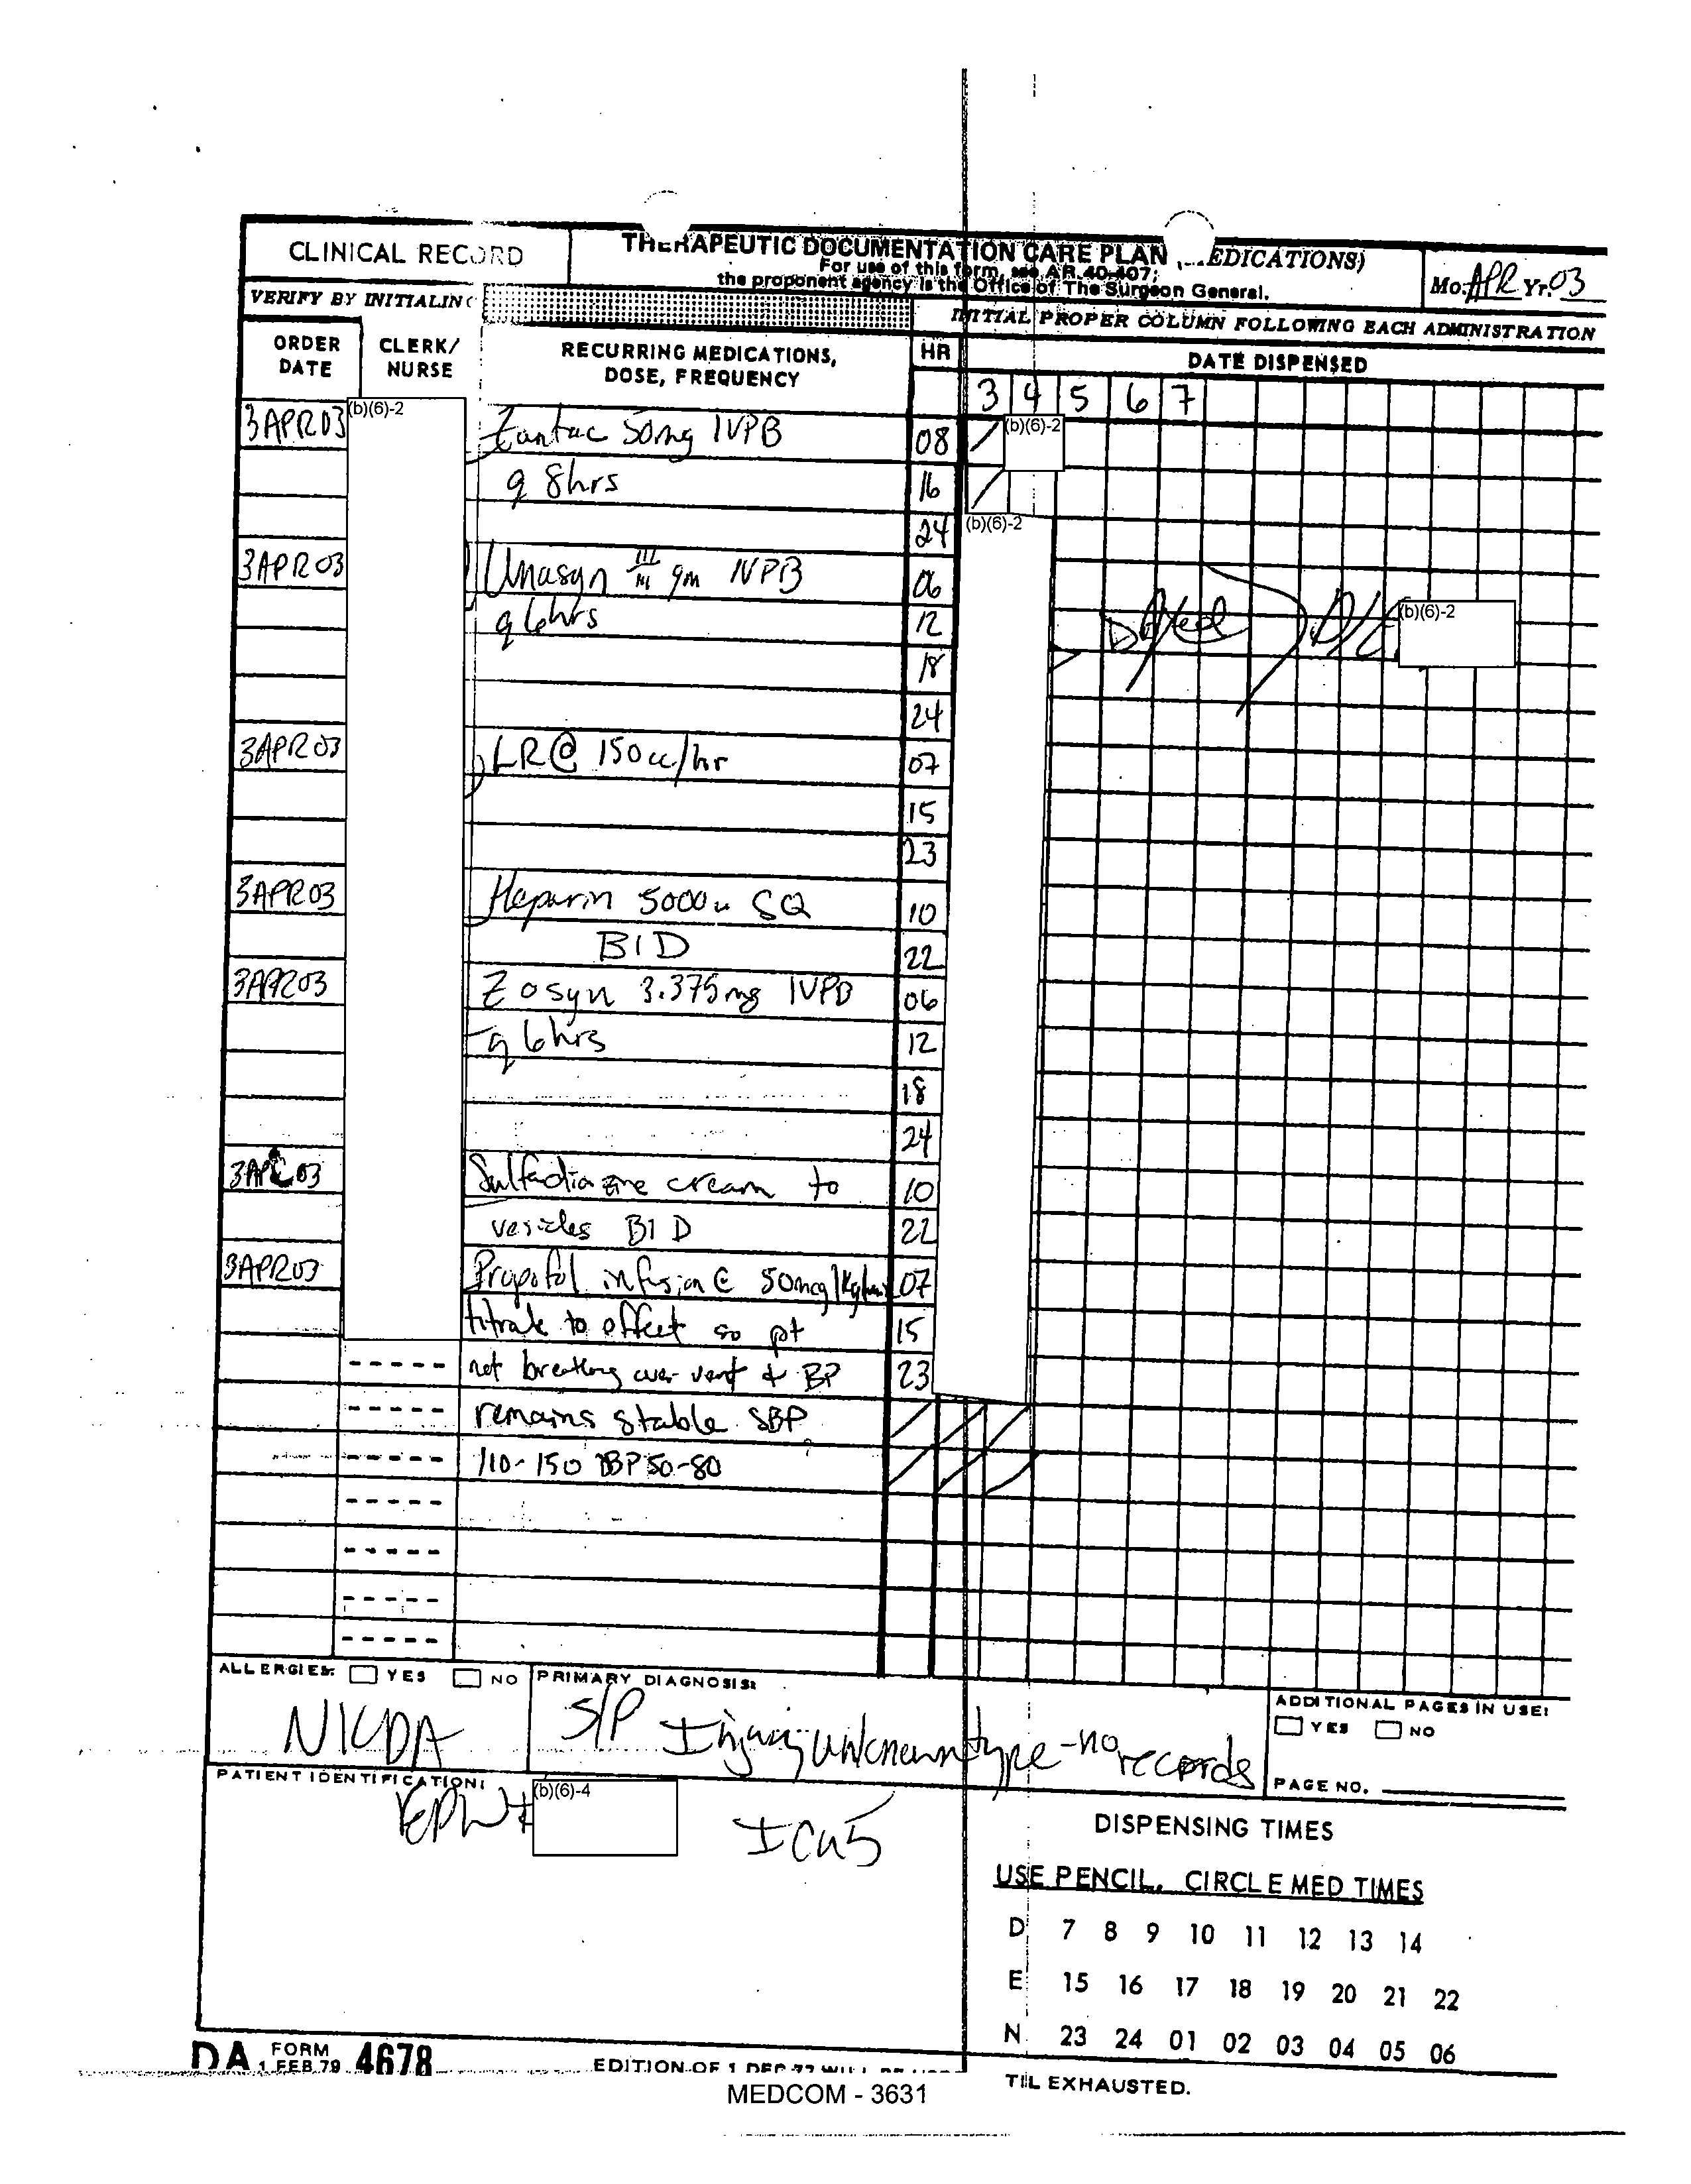 CLINICAL RECORD
THERAPEUTIC DOCUMENTATION CARE PLAN EDICATIONS)
For use of this form, see AR 40-407;
the proponent agency is the Office of The Surgeon General.
Mo. APR Yr. 03
VERIFY BY INITIALIN
INITIAL PROPER COLUMN FOLLOWING EACH ADMINISTRATION
ORDER DATE CLERK/ NURSE RECURRING MEDICATIONS, DOSE, FREQUENCY HR DATE DISPENSED
3 4 5 6 7
3APR03 (b)(6)-2 Zantac 50mg IVPB 08 (b)(6)-2
q 8hrs 16
24 (b)(6)-2
3APR03 Unasyn III gm IVPB 06
q 6hrs 12 D/C (b)(6)-2
18
24
3APR03 LR@ 150cc/hr 07
15
23
3APR03 Heparin 5000u SQ 10
BID 22
3APR03 Zosyn 3.375mg IVPB 06
q 6hrs 12
18
24
3APR03 Sulfadiazine cream to 10
vesicles BID 22
3APR03 Propofol infusion @ 50mcg/kg/min 07
titrate to effect so pt 15
not breathing over vent & BP 23
remains stable SBP
110-150 DBP 50-80
ALLERGIES: YES NO PRIMARY DIAGNOSIS:
NKDA S/P Injury unknown type - no records
ADDITIONAL PAGES IN USE:
YES NO
PAGE NO.
PATIENT IDENTIFICATION:
EPW # (b)(6)-4 ICU5
DISPENSING TIMES
USE PENCIL. CIRCLE MED TIMES
D 7 8 9 10 11 12 13 14
E 15 16 17 18 19 20 21 22
N 23 24 01 02 03 04 05 06
DA FORM 1 FEB 79 4678 EDITION OF 1 DEC 77 WILL BE USED
TIL EXHAUSTED.
MEDCOM - 3631